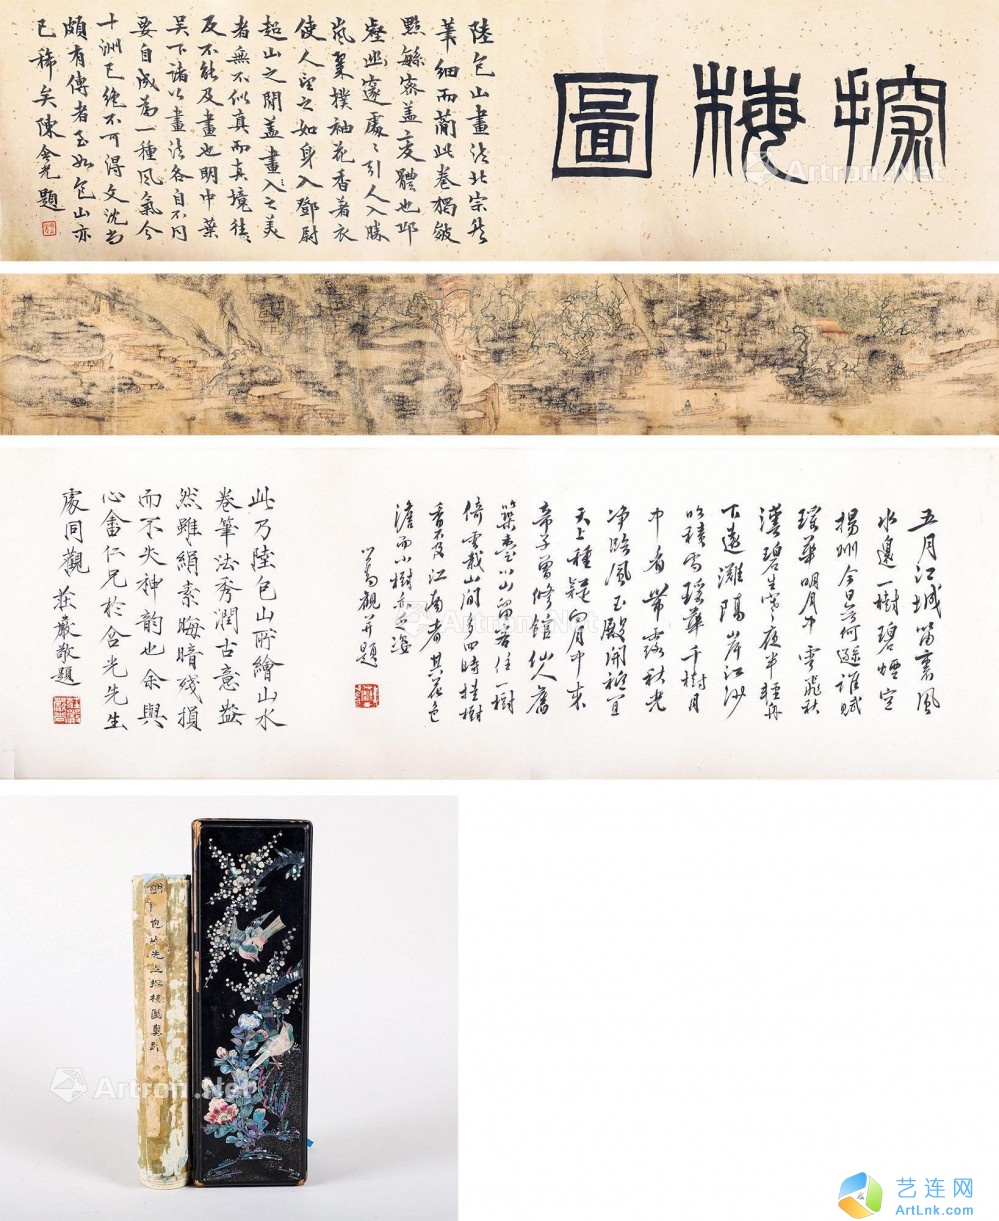 探梅圖
陸包山畫法北宗然
筆細而蘭此卷獨皴
點緐密蓋変體也邱
壑幽邃處〻引人入勝
嵐翠撲袖花香著衣
使人望之如身入鄧尉
超山之間蓋畫入之美
者無不似真而真境徃〻
反不能及畫也明中葉
吳下諸公畫法各自不同
要自成為一種風氣今
十洲已絕不可得文沈尚
頗有傳者至如包山亦
已稀矣陳含光題
五月江城笛裏風
水邊一樹碧煙空
揚州今日無何遜誰賦
瑤華明月中雲飛秋
漢碧生寒夜半輕舟
下遠灘隔岸江沙
吹積雪瑤華千樹月
中看帶露秋光
淨臨風玉殿開祗宜
天上種疑向月中來
帝子曾修館仙人舊
築臺小山留客住一樹
倚雲栽山間多四時桂樹
香不及江南者其花色
澹而小樹亦多姿
心畬觀并題
此乃陸包山所繪山水
卷筆法秀潤古意盎
然雖絹素晦暗殘損
而不失神韵也余與
心畬仁兄於含光先生
處同觀 莊嚴敬題
明 包山先生探梅圖真跡
Artron.Net
艺连网
ArtLnk.com